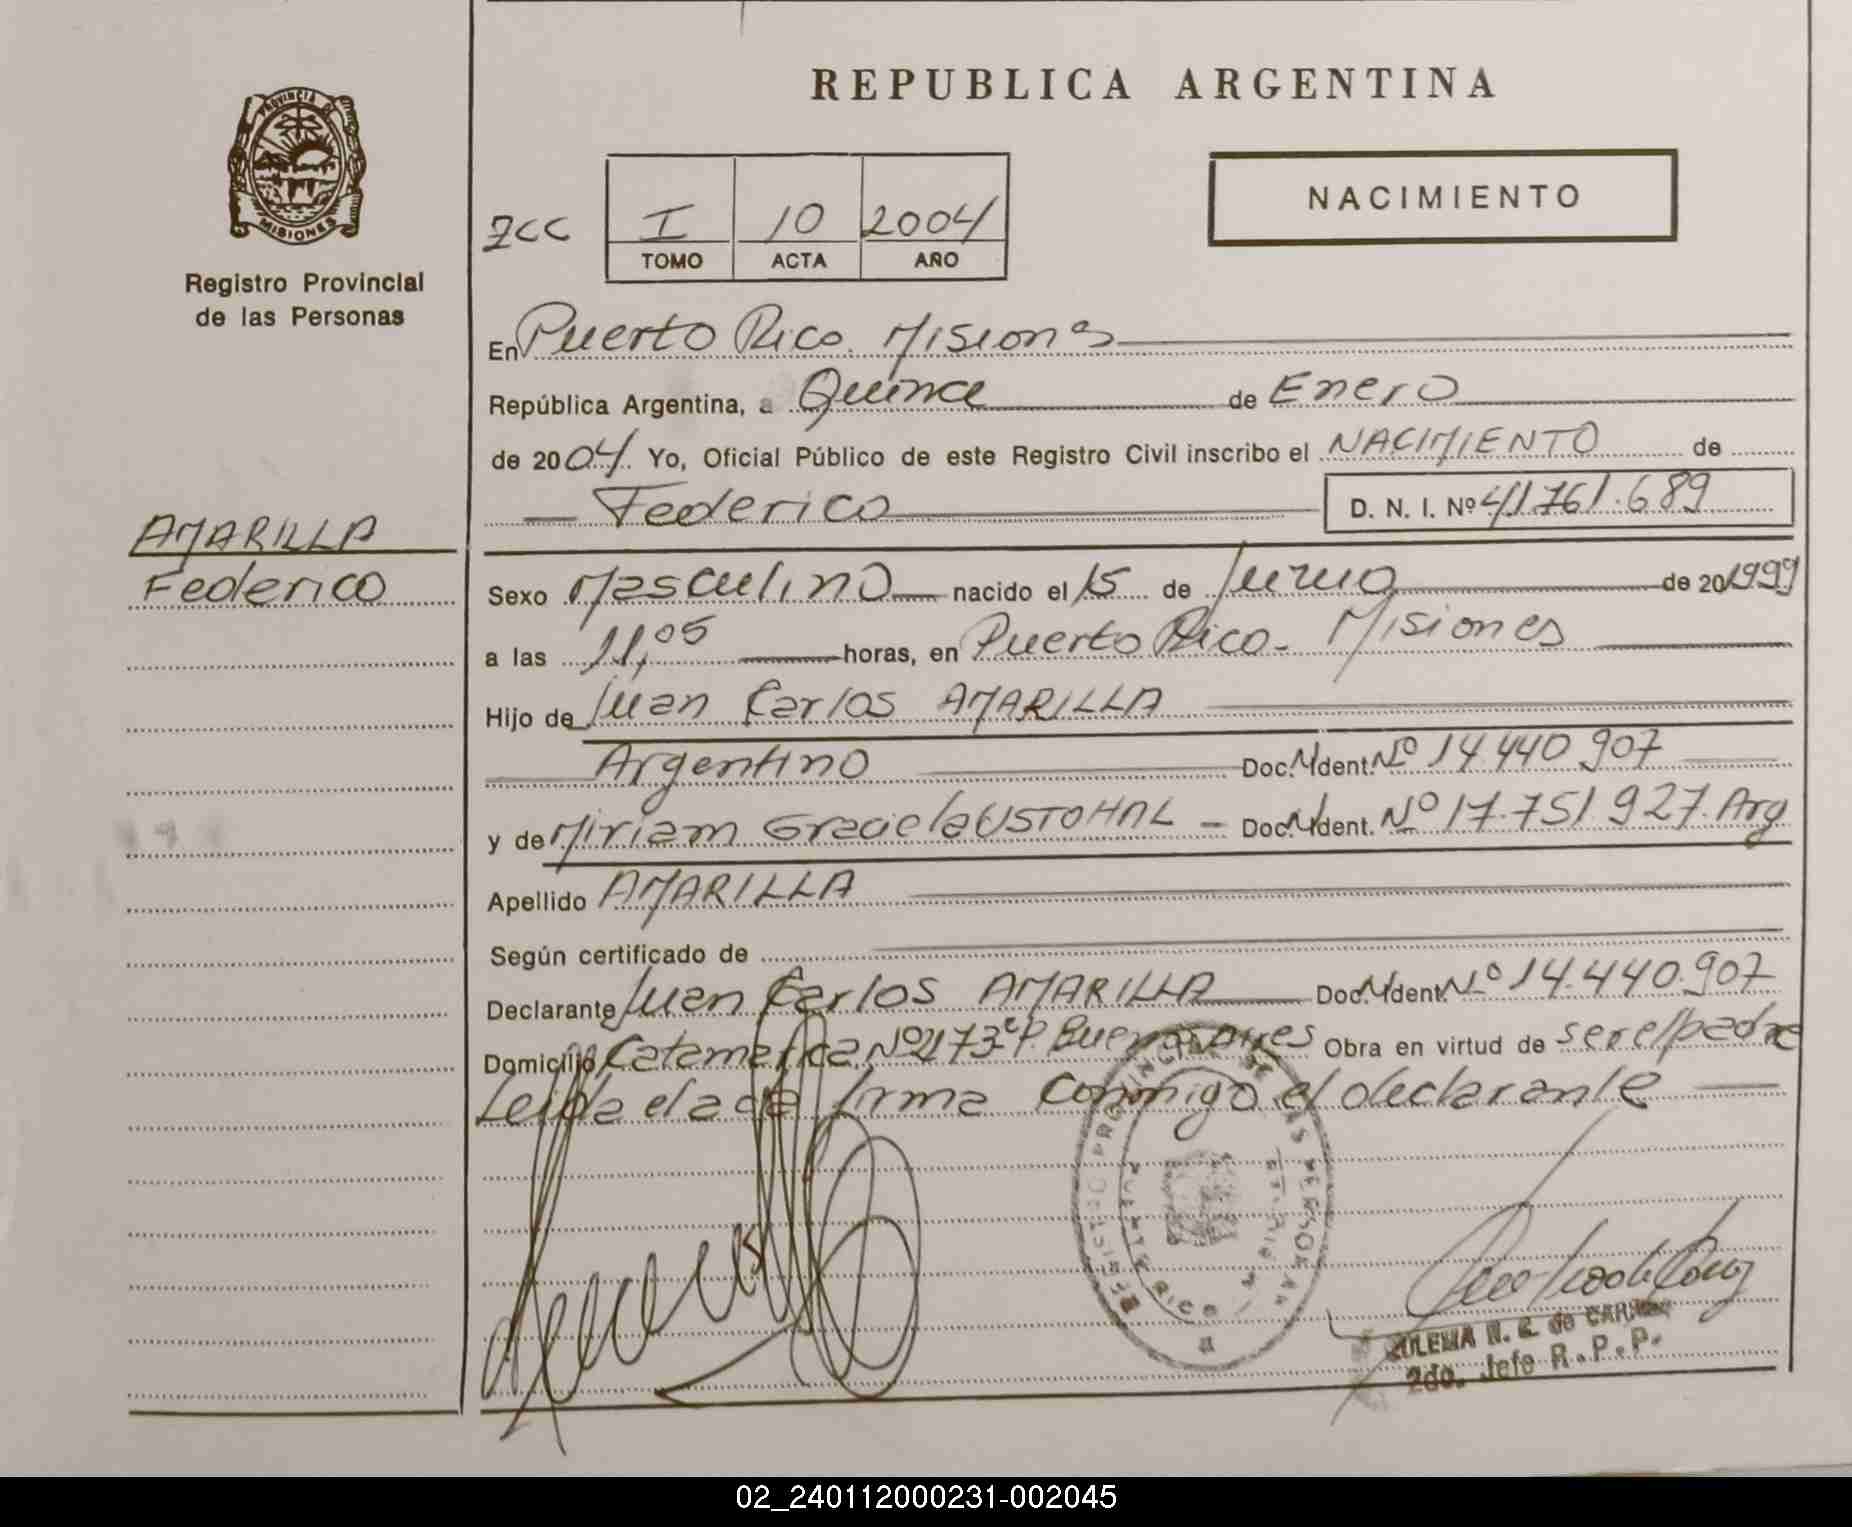 REPUBLICA ARGENTINA
PROVINCIA DE
MISIONES
Registro Provincial
de las Personas
NACIMIENTO
I 10 2004
TOMO ACTA AÑO
En Puerto Rico. Misiones
República Argentina, a Quince de Enero
de 2004 Yo, Oficial Público de este Registro Civil inscribo el NACIMIENTO de
Federico D. N. I. Nº 41.761.689
AMARILLA
Federico
Sexo Masculino nacido el 15 de Junio de 20 1999
a las 11,05 horas, en Puerto Rico - Misiones
Hijo de Juan Carlos AMARILLA
Argentino Doc. Ident. Nº 14.440.907
y de Miriam Graciela USTOHAL - Doc. Ident. Nº 17.751.927. Arg
Apellido AMARILLA
Según certificado de
Declarante Juan Carlos AMARILLA Doc. Ident. Nº 14.440.907
Domicilio Catamarca Nº Buenos Aires Obra en virtud de ser el padre
Leída el acta firma conmigo el declarante
REGISTRO PROVINCIAL DE LAS PERSONAS
PUERTO RICO
ZULEMA N. E. de
2do. Jefe R.P.P.
02_240112000231-002045